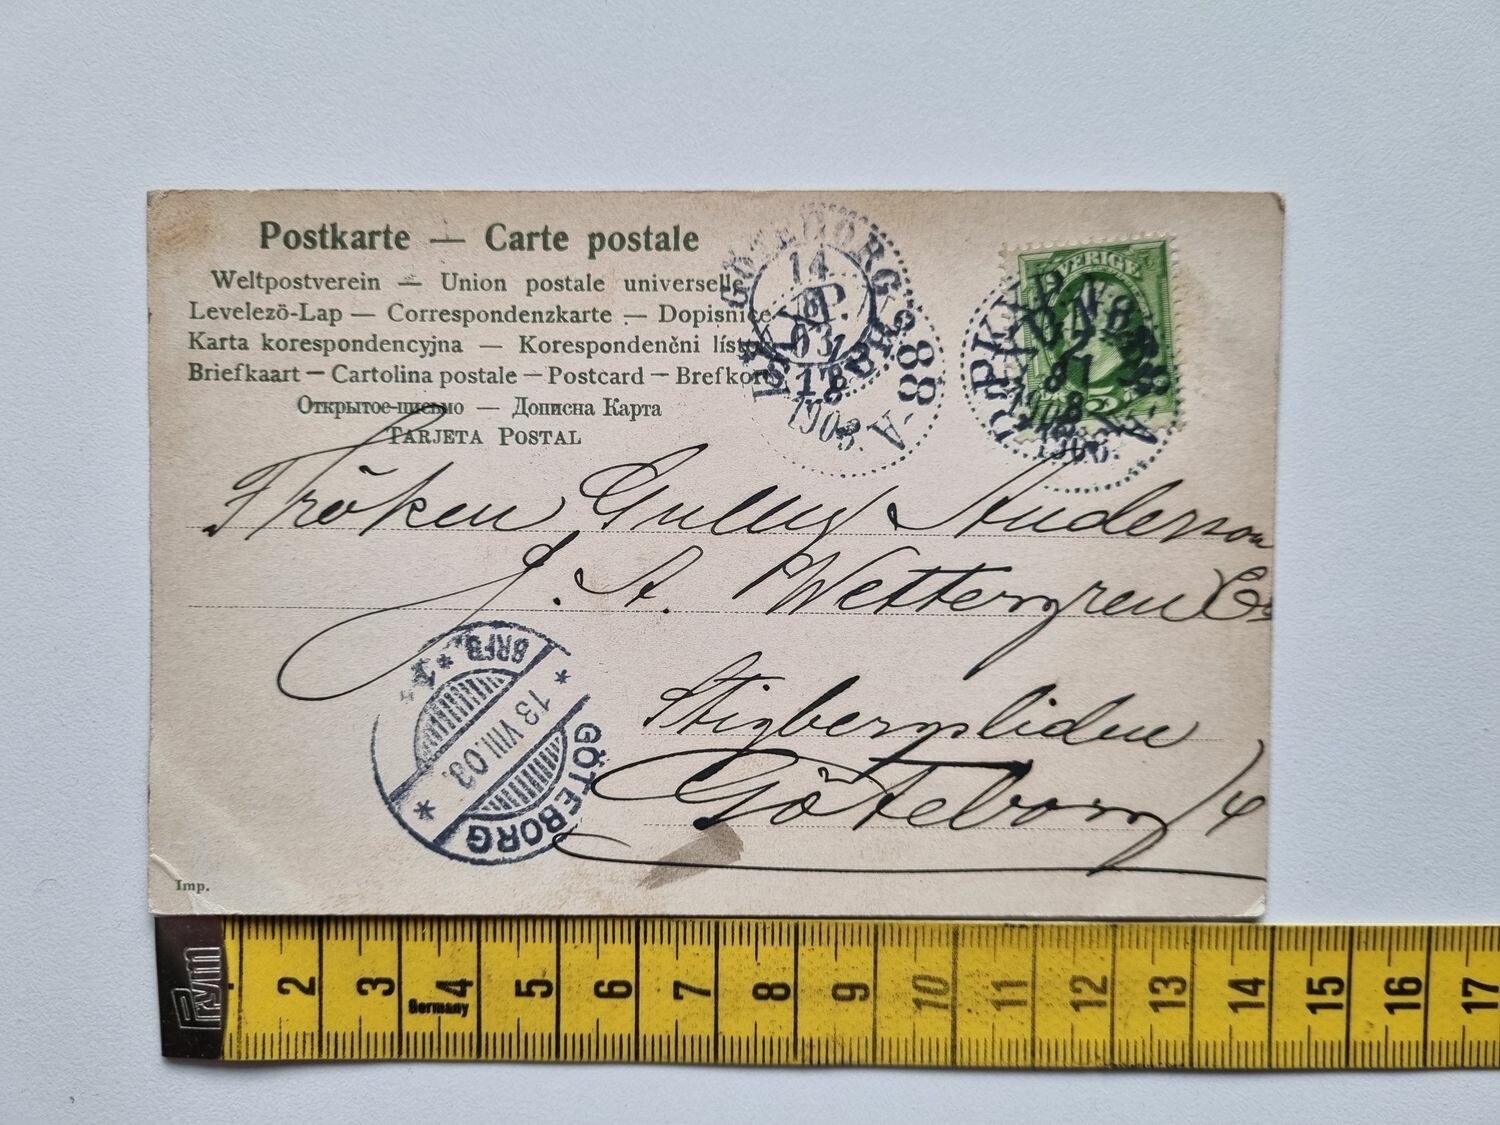 Postkarte — Carte postale
Weltpostverein — Union postale universelle
Levelező-Lap — Correspondenzkarte — Dopisnice
Karta korespondencyjna — Korespondenčni lístek
Briefkaart — Cartolina postale — Postcard — Brefkort
Открытое-письмо — Дописна Карта
TARJETA POSTAL
GÖTEBORG
14
8
03
PKXP.
88
A
1903
SVERIGE
PKXP. No
Fröken Gully Anderson
J. A. Wettergren & Co
Stigbergsliden
Göteborg 4
GÖTEBORG
13 VIII.03.
*1* BRFB.
Imp.
Prym
2 3 4 5 6 7 8 9 10 11 12 13 14 15 16 17
Germany